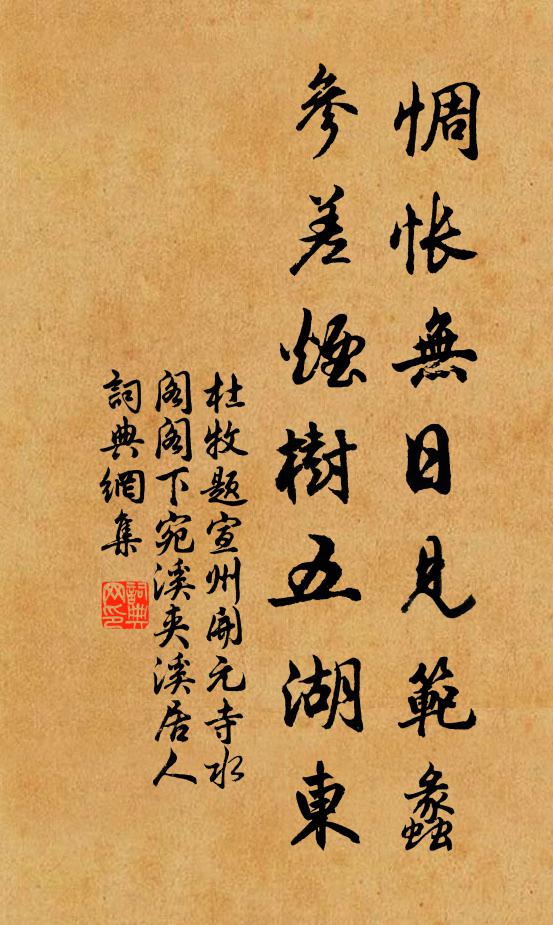 惆悵無日見範蠡
參差煙樹五湖東
杜牧題宣州開元寺水
閣閣下宛溪夾溪居人
詞典網集
詞典网印